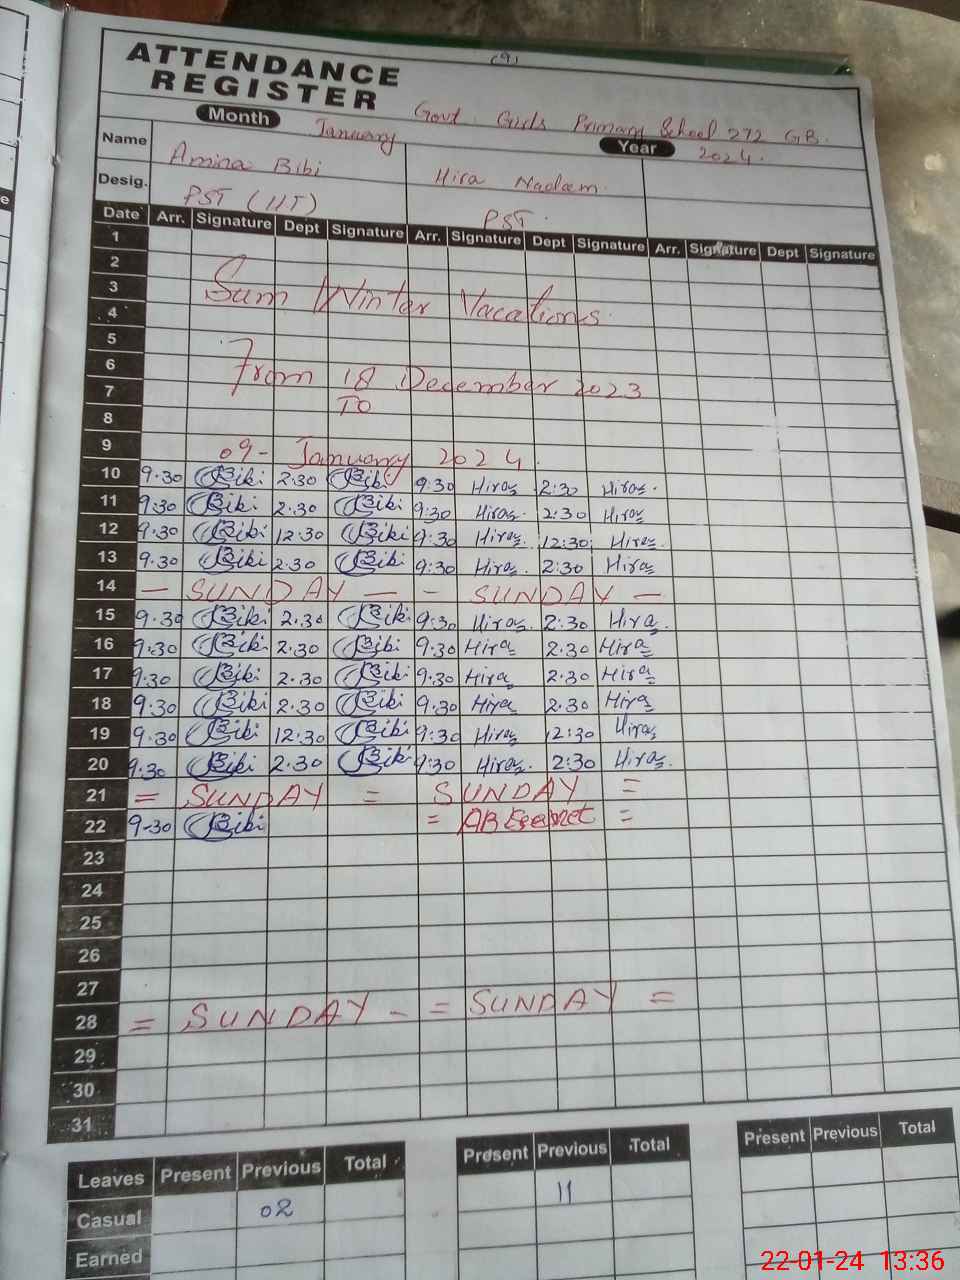 (9)
ATTENDANCE
REGISTER
Govt. Girls Primary School 272 GB.
Month January Year 2024.
Name Amina Bibi Hira Nadeem
Desig. PST (IIT) PST.
Date Arr. Signature Dept Signature Arr. Signature Dept Signature Arr. Signature Dept Signature
1
2
3 Sum Winter Vacations
4
5
6 From 18 December 2023
7 TO
8
9 09- January 2024.
10 9.30 Bibi 2.30 Bibi 9:30 Hira 2:30 Hira
11 9.30 Bibi 2.30 Bibi 9:30 Hira 2:30 Hira
12 9.30 Bibi 12.30 Bibi 9:30 Hira 12:30 Hira
13 9.30 Bibi 2.30 Bibi 9:30 Hira 2:30 Hira
14 — SUNDAY — - SUNDAY —
15 9.30 Bibi 2.30 Bibi 9:30 Hira 2:30 Hira
16 9.30 Bibi 2.30 Bibi 9.30 Hira 2.30 Hira
17 9.30 Bibi 2.30 Bibi 9.30 Hira 2.30 Hira
18 9.30 Bibi 2.30 Bibi 9.30 Hira 2.30 Hira
19 9.30 Bibi 12.30 Bibi 9:30 Hira 12:30 Hira
20 9.30 Bibi 2.30 Bibi 9:30 Hira 2:30 Hira
21 = SUNDAY = SUNDAY =
22 9-30 Bibi = =
23
24
25
26
27
28 = SUNDAY - = SUNDAY =
29
30
31
Leaves Present Previous Total Present Previous Total Present Previous Total
Casual 02 11
Earned
22-01-24 13:36